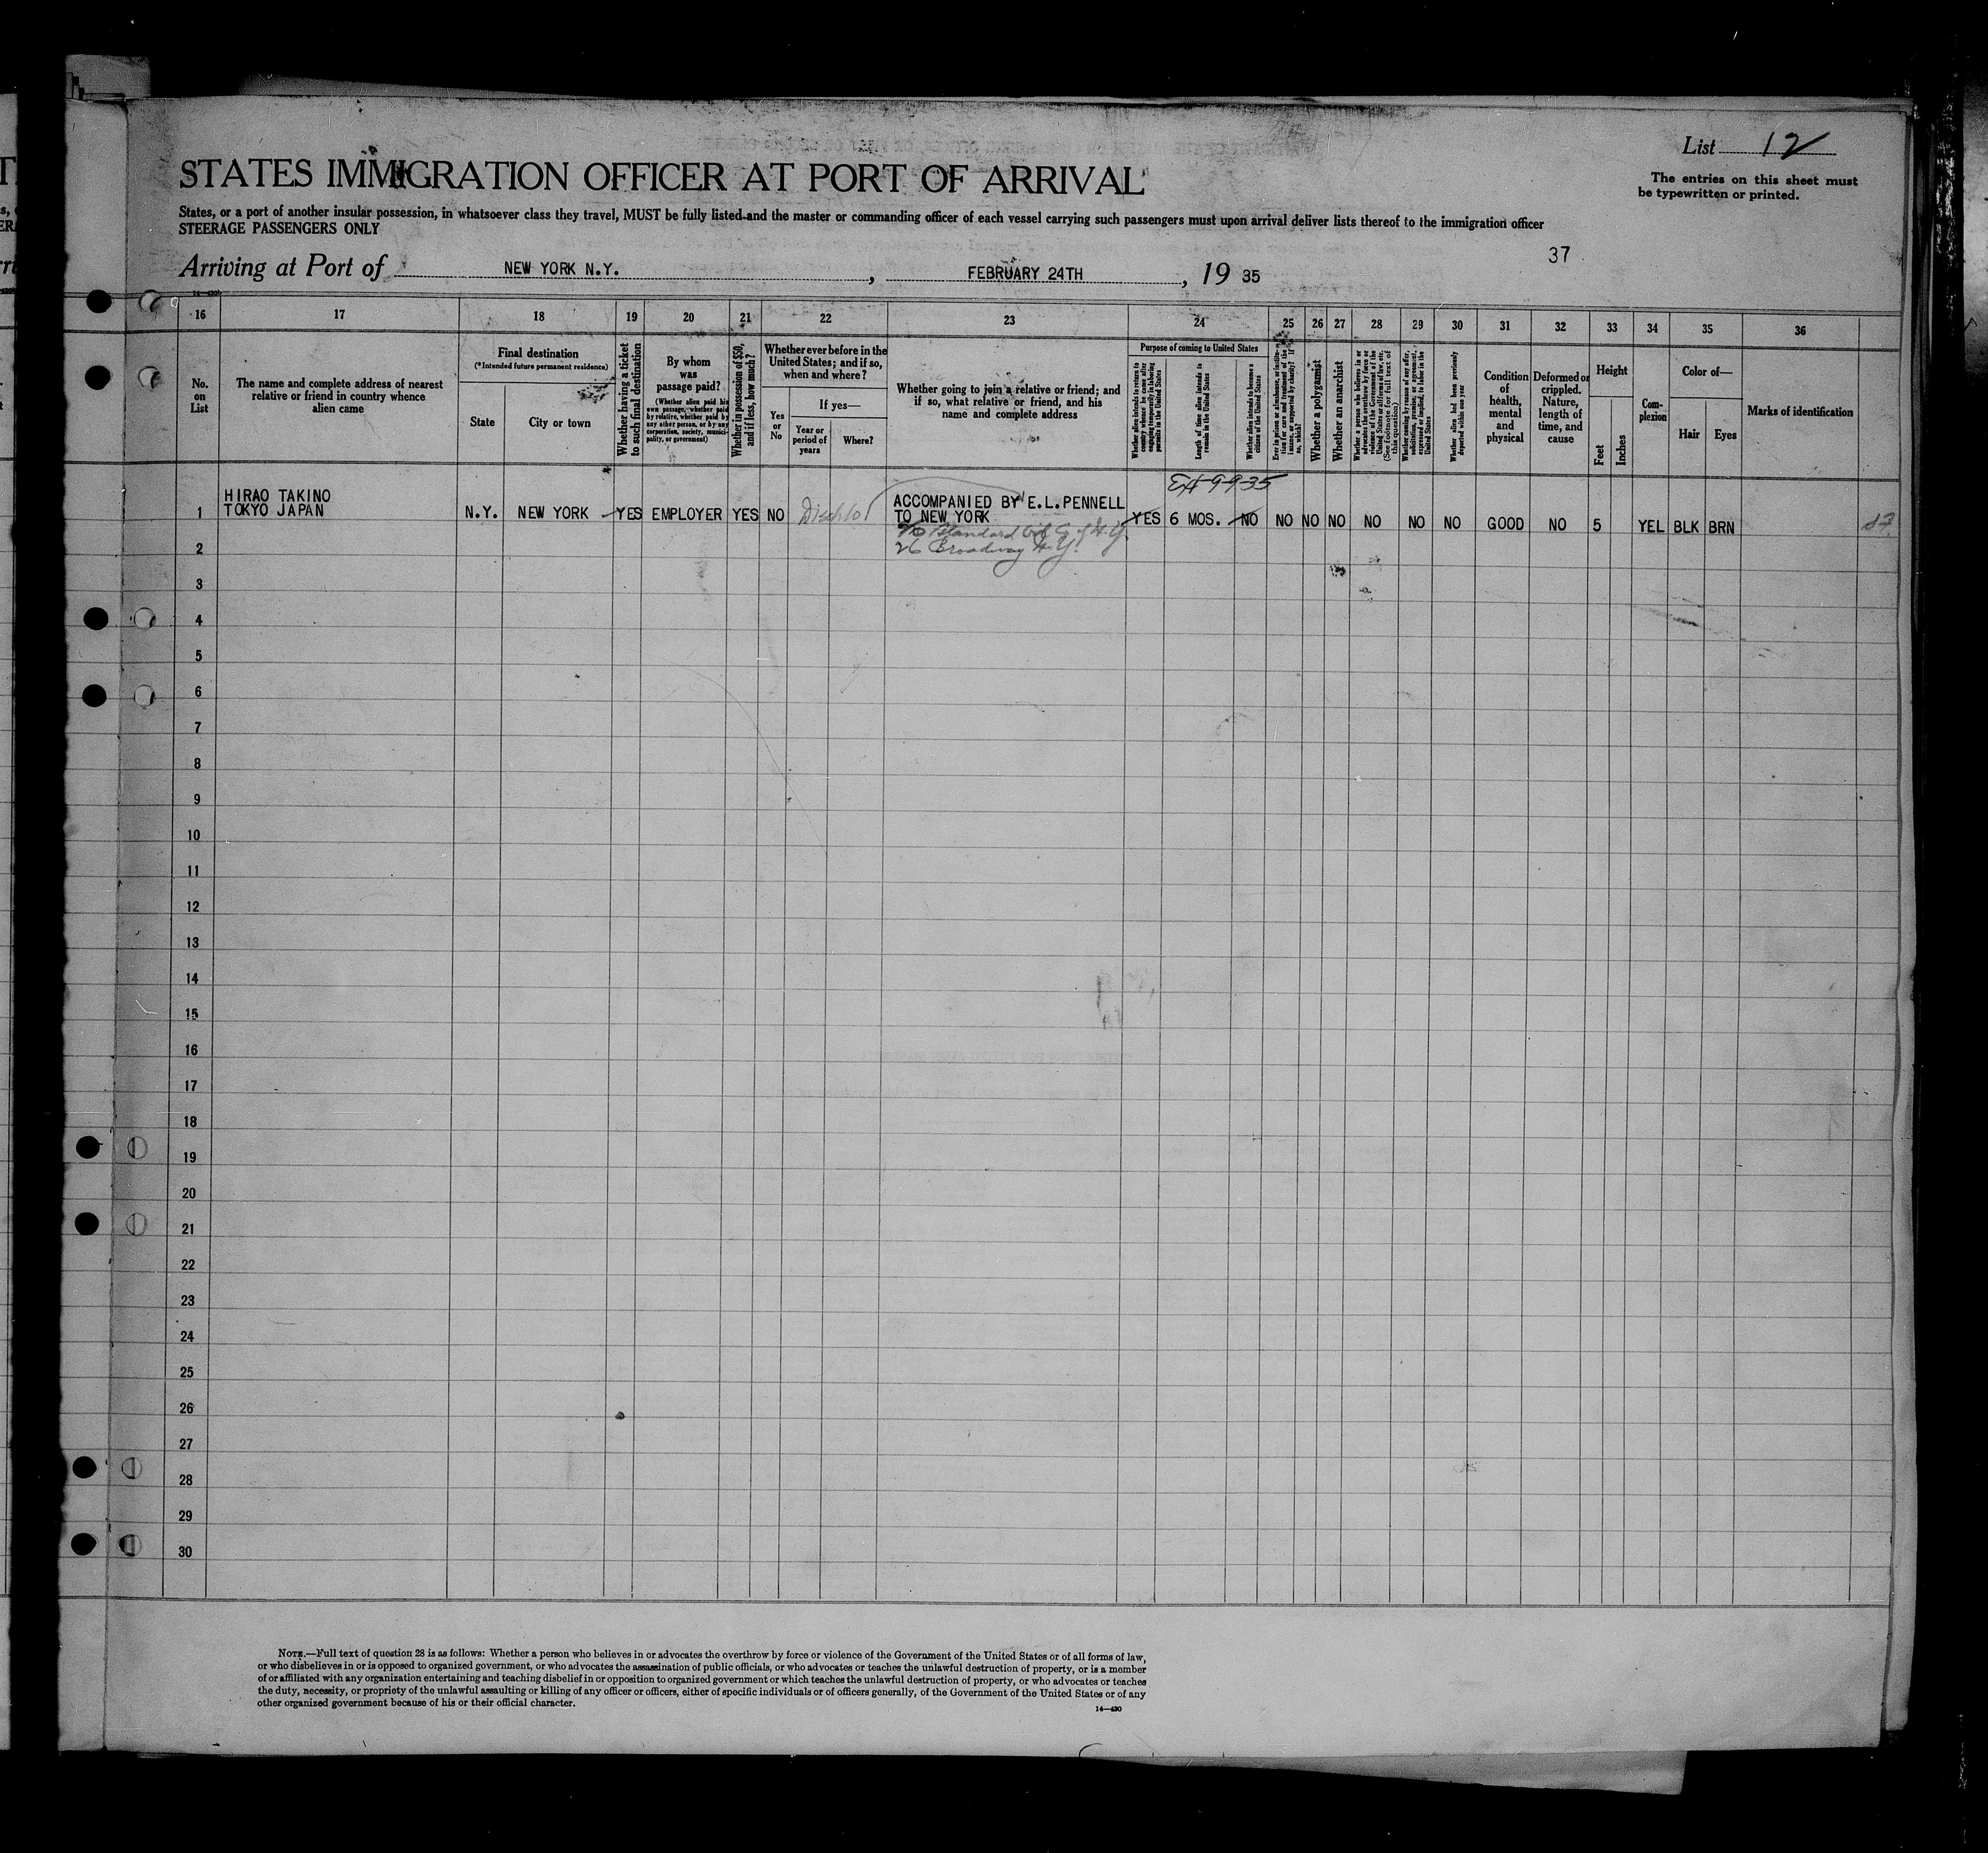 List 12
The entries on this sheet must
be typewritten or printed.
STATES IMMIGRATION OFFICER AT PORT OF ARRIVAL
States, or a port of another insular possession, in whatsoever class they travel, MUST be fully listed and the master or commanding officer of each vessel carrying such passengers must upon arrival deliver lists thereof to the immigration officer
STEERAGE PASSENGERS ONLY
37
Arriving at Port of NEW YORK N.Y. , FEBRUARY 24TH , 19 35
16 17 18 19 20 21 22 23 24 25 26 27 28 29 30 31 32 33 34 35 36
No.
on
List
The name and complete address of nearest
relative or friend in country whence
alien came
Final destination
(*Intended future permanent residence)
State
City or town
Whether having a ticket
to such final destination
By whom
was
passage paid?
(Whether alien paid his
own passage, whether paid
by relative, whether paid by
any other person, or by any
corporation, society, munici-
pality, or government)
Whether in possession of $50,
and if less, how much?
Whether ever before in the
United States; and if so,
when and where?
Yes
or
No
If yes—
Year or
period of
years
Where?
Whether going to join a relative or friend; and
if so, what relative or friend, and his
name and complete address
Purpose of coming to United States
Whether alien intends to return to
country whence he came after
engaging temporarily in laboring
pursuits in the United States
Length of time alien intends to
remain in the United States
Whether alien intends to become a
citizen of the United States
Ever in prison or almshouse, or institu-
tion for care and treatment of the
insane, or supported by charity? If
so, which?
Whether a polygamist
Whether an anarchist
Whether a person who believes in or
advocates the overthrow by force or
violence of the Government of the
United States or all forms of law, etc.
(See footnote for full text of
this question)
Whether coming by reason of any offer,
solicitation, promise, or agreement,
expressed or implied, to labor in the
United States
Whether alien had been previously
deported within one year
Condition
of
health,
mental
and
physical
Deformed or
crippled.
Nature,
length of
time, and
cause
Height
Feet
Inches
Com-
plexion
Color of—
Hair
Eyes
Marks of identification
HIRAO TAKINO
1 TOKYO JAPAN N.Y. NEW YORK YES EMPLOYER YES NO
ACCOMPANIED BY E.L.PENNELL
TO NEW YORK
Standard Oil Co. of N.Y.
26 Broadway N.Y.
9-9-35
YES 6 MOS. NO NO NO NO NO NO NO GOOD NO 5 YEL BLK BRN
2
3
4
5
6
7
8
9
10
11
12
13
14
15
16
17
18
19
20
21
22
23
24
25
26
27
28
29
30
NOTE.—Full text of question 28 is as follows: Whether a person who believes in or advocates the overthrow by force or violence of the Government of the United States or of all forms of law,
or who disbelieves in or is opposed to organized government, or who advocates the assassination of public officials, or who advocates or teaches the unlawful destruction of property, or is a member
of or affiliated with any organization entertaining and teaching disbelief in or opposition to organized government or which teaches the unlawful destruction of property, or who advocates or teaches
the duty, necessity, or propriety of the unlawful assaulting or killing of any officer or officers, either of specific individuals or of officers generally, of the Government of the United States or of any
other organized government because of his or their official character.
14—430